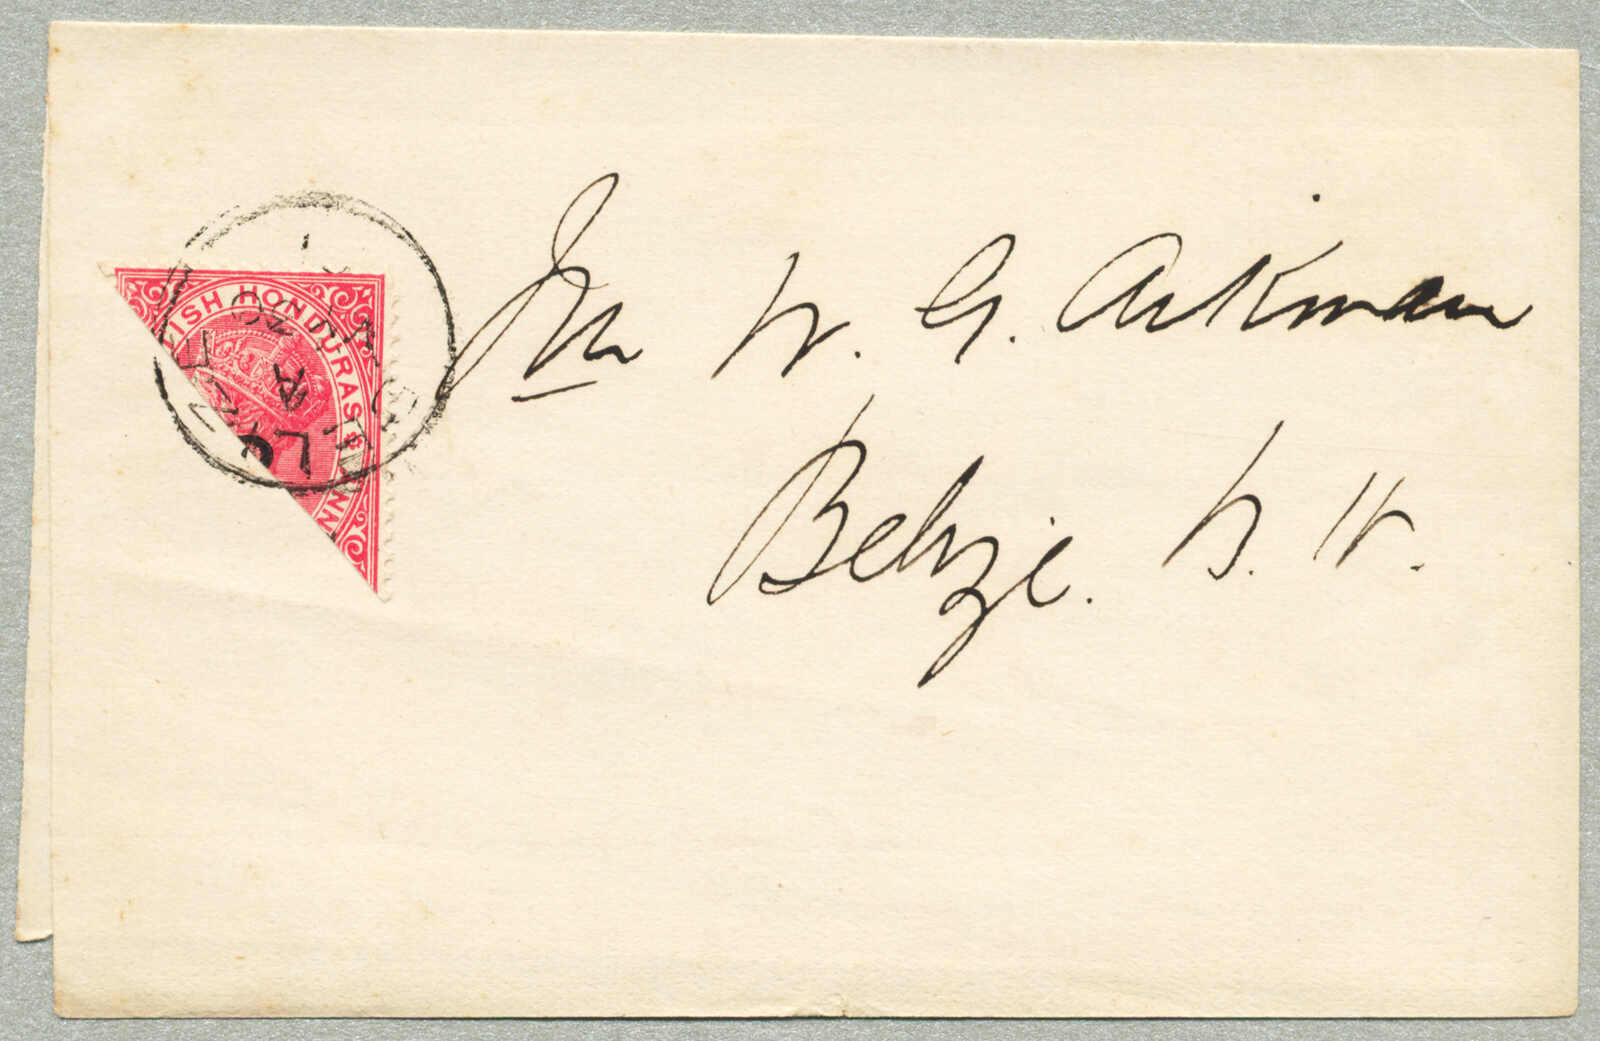 ISH HONDURAS
Mr W. G. Aikman
Belize. B. H.